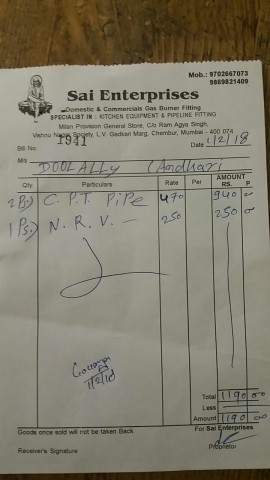 Mob.: 9702667073
9869821409
Sai Enterprises
Domestic & Commercials Gas Burner Fitting
SPECIALIST IN : KITCHEN EQUIPMENT & PIPELINE FITTING
Milan Provision General Store, C/o Ram Agya Singh,
Vishnu Nagar Society, L.V. Gadkari Marg, Chembur, Mumbai - 400 074
Bill No. 1941 Date 1/2/18
M/s DOOLALLY (Andhari
Qty Particulars Rate Per AMOUNT RS. P
2 Ps) C. P.T. PiPe 470 940
1 Ps) N. R. V. 250 250
1/2/18
Total 1190 00
Less
Amount 1190 00
Goods once sold will not be taken Back
For Sai Enterprises
Receiver's Signature
Proprietor